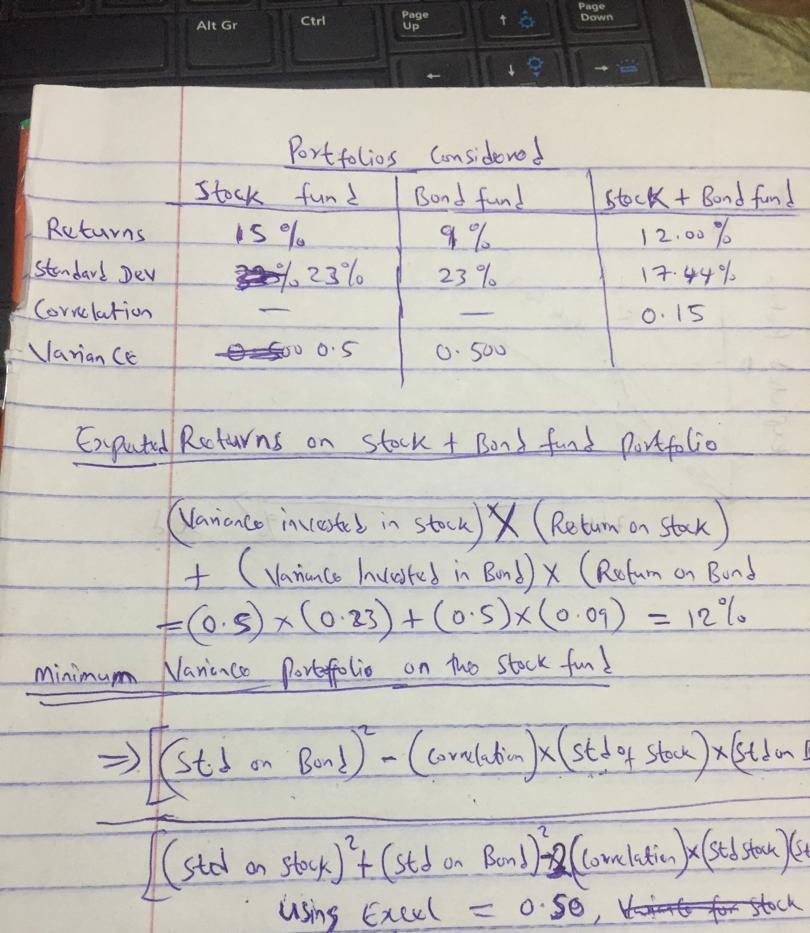 Alt Gr Ctrl Page Up Page Down
Portfolios Considered
Stock fund Bond fund Stock + Bond fund
Returns 15 % 9 % 12.00 %
Standard Dev % 23% 23 % 17.44%
Correlation — — 0.15
Variance 0.500 0.5 0.500
Expected Returns on Stock + Bond fund Portfolio
(Variance invested in stock) X (Return on stock)
+ (Variance Invested in Bond) X (Return on Bond
= (0.5) × (0.23) + (0.5) × (0.09) = 12%
Minimum Variance Porteffolio on the Stock fund
=> [(Std on Bond)² - (Correlation) × (Std of Stock) × (Std on
[(Std on stock)² + (Std on Bond)² - 2 (Correlation) × (Std stock)(St
Using Excel = 0.50, Variance for stock